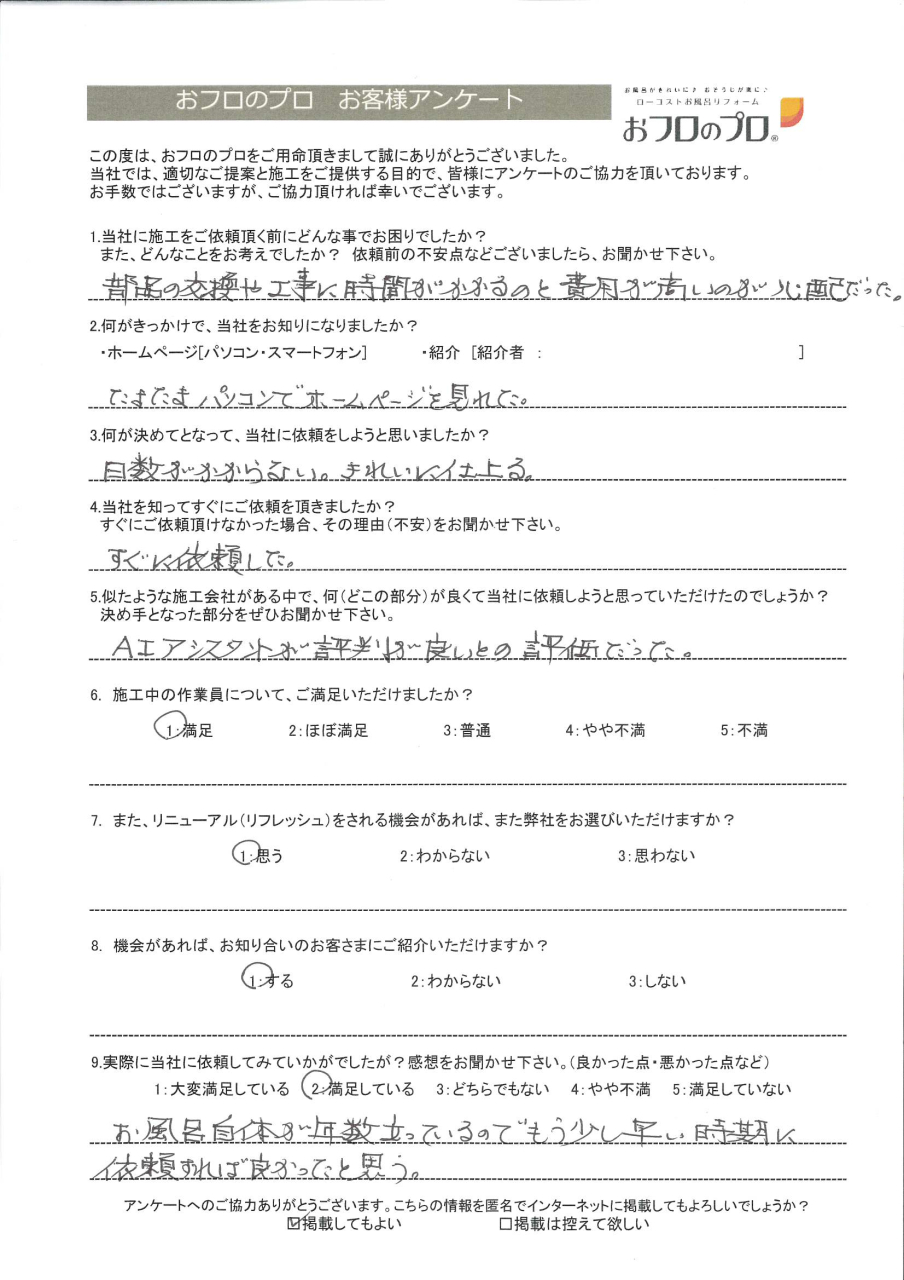 おフロのプロ お客様アンケート
お風呂がきれいに♪ おそうじが楽に♪
ローコストお風呂リフォーム
おフロのプロ®
この度は、おフロのプロをご用命頂きまして誠にありがとうございました。
当社では、適切なご提案と施工をご提供する目的で、皆様にアンケートのご協力を頂いております。
お手数ではございますが、ご協力頂ければ幸いでございます。
1.当社に施工をご依頼頂く前にどんな事でお困りでしたか?
また、どんなことをお考えでしたか? 依頼前の不安点などございましたら、お聞かせ下さい。
部品の交換や工事に時間がかかるのと費用が高いのが心配だった。
2.何がきっかけで、当社をお知りになりましたか?
・ホームページ[パソコン・スマートフォン] ・紹介 [紹介者 : ]
たまたまパソコンでホームページを見れた。
3.何が決めてとなって、当社に依頼をしようと思いましたか?
日数がかからない。きれいに仕上る。
4.当社を知ってすぐにご依頼を頂きましたか?
すぐにご依頼頂けなかった場合、その理由(不安)をお聞かせ下さい。
すぐに依頼した。
5.似たような施工会社がある中で、何(どこの部分)が良くて当社に依頼しようと思っていただけたのでしょうか?
決め手となった部分をぜひお聞かせ下さい。
AIアシスタントが評判が良いとの評価だった。
6. 施工中の作業員について、ご満足いただけましたか?
1:満足 2:ほぼ満足 3:普通 4:やや不満 5:不満
7. また、リニューアル(リフレッシュ)をされる機会があれば、また弊社をお選びいただけますか?
1:思う 2:わからない 3:思わない
8. 機会があれば、お知り合いのお客さまにご紹介いただけますか?
1:する 2:わからない 3:しない
9.実際に当社に依頼してみていかがでしたが?感想をお聞かせ下さい。(良かった点・悪かった点など)
1:大変満足している 2:満足している 3:どちらでもない 4:やや不満 5:満足していない
お風呂自体が年数立っているのでもう少し早い時期に
依頼すれば良かったと思う。
アンケートへのご協力ありがとうございます。こちらの情報を匿名でインターネットに掲載してもよろしいでしょうか?
☑掲載してもよい □掲載は控えて欲しい